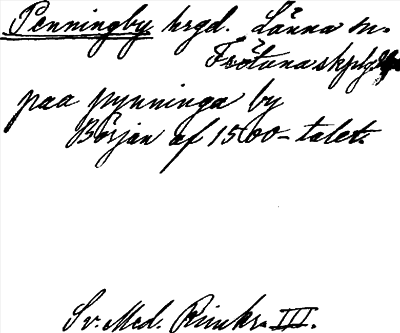 Penningby hrgd. Länna sn.
Frötuna skplg
paa pynninga by
Början af 1500-talet.
Sv. Med. Rimkr. III.